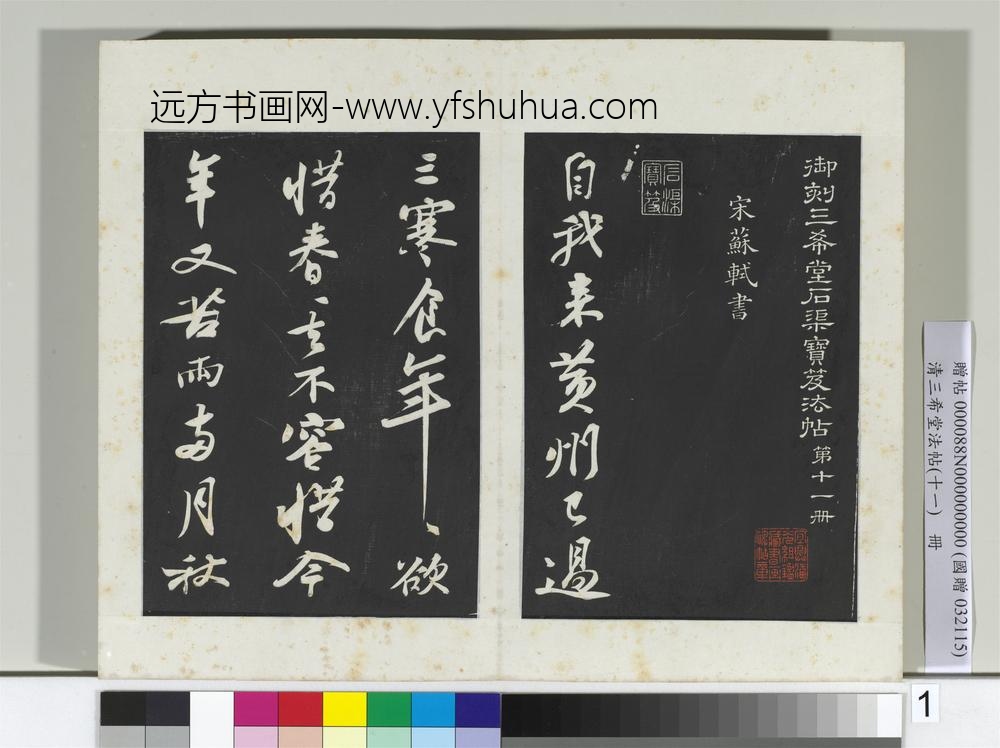 远方书画网-www.yfshuhua.com
御刻三希堂石渠寶笈法帖第十一册
宋蘇軾書
石渠寶笈
自我来黄州已過
三寒食年〻欲
惜春〻去不容惜今
年又苦雨两月秋
贈帖 000088N000000000 (國贈 032115)
清三希堂法帖(十一) 冊
1